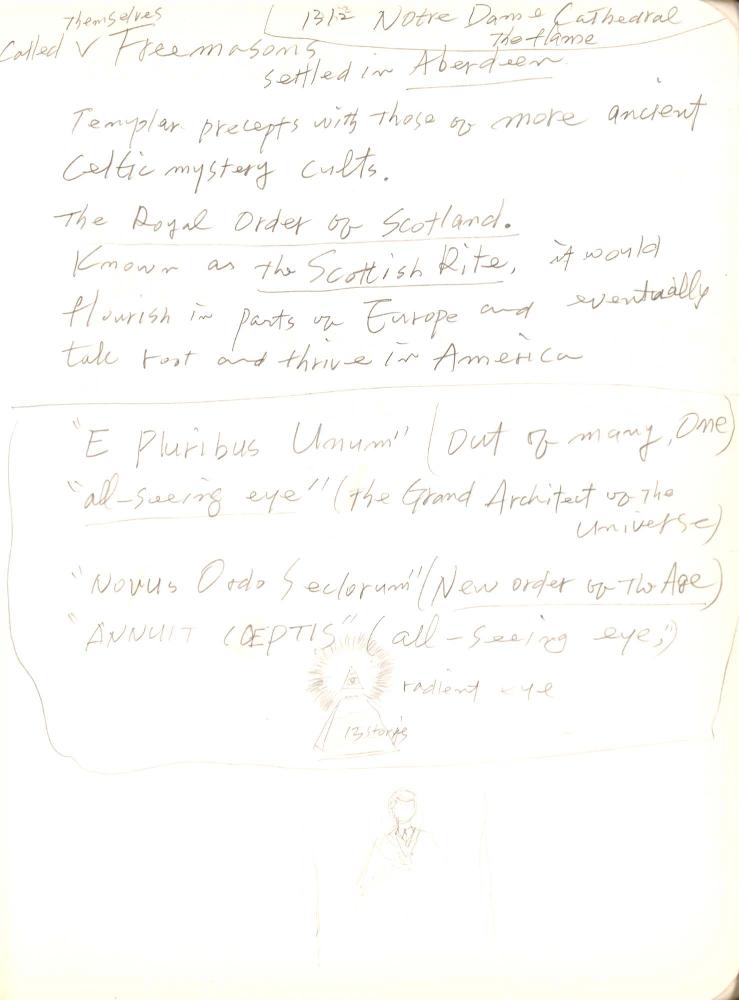 1312 Notre Dame Cathedral
The flame
themselves
Called V Freemasons
settled in Aberdeen
Templar precepts with those of more ancient
Celtic mystery cults.
The Royal Order of Scotland.
Known as the Scottish Rite, it would
flourish in parts of Europe and eventually
take root and thrive in America
"E Pluribus Unum" (Out of many, One)
"all-seeing eye" (the Grand Architect of the
Universe)
"Novus Ordo Seclorum" (New order of The Age)
"ANNUIT CŒPTIS" (all-seeing eye,")
radient eye
13 stories